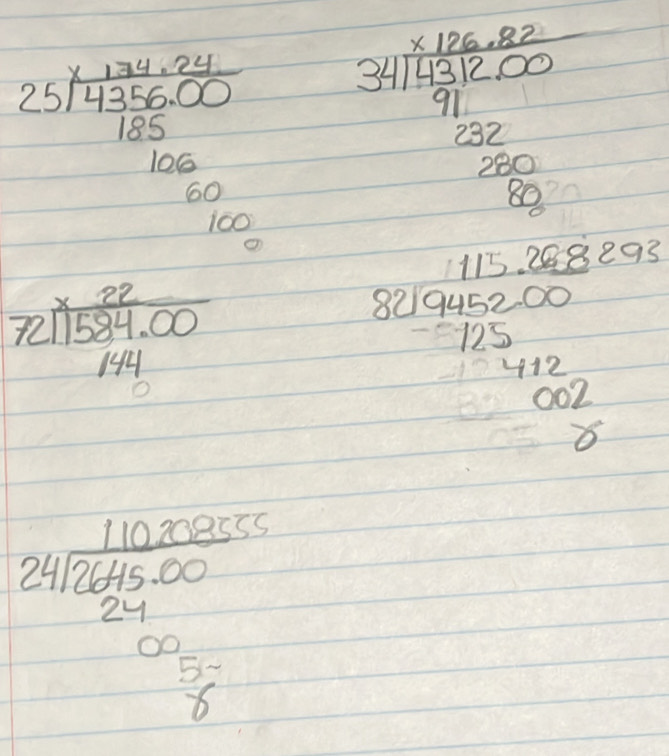 x 174.24
25 4356.00
185
106
60
100
0
x 126.82
34 4312.00
91
232
280
80
0
x 22
72 1584.00
144
0
115.268293
82 9452.00
125
412
002
110.208555
24 2645.00
24
00
5